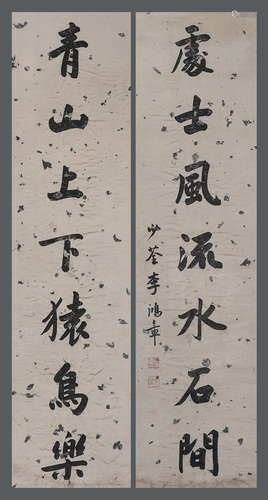 處士風流水石間
少荃李鴻章
青山上下猿鳥樂